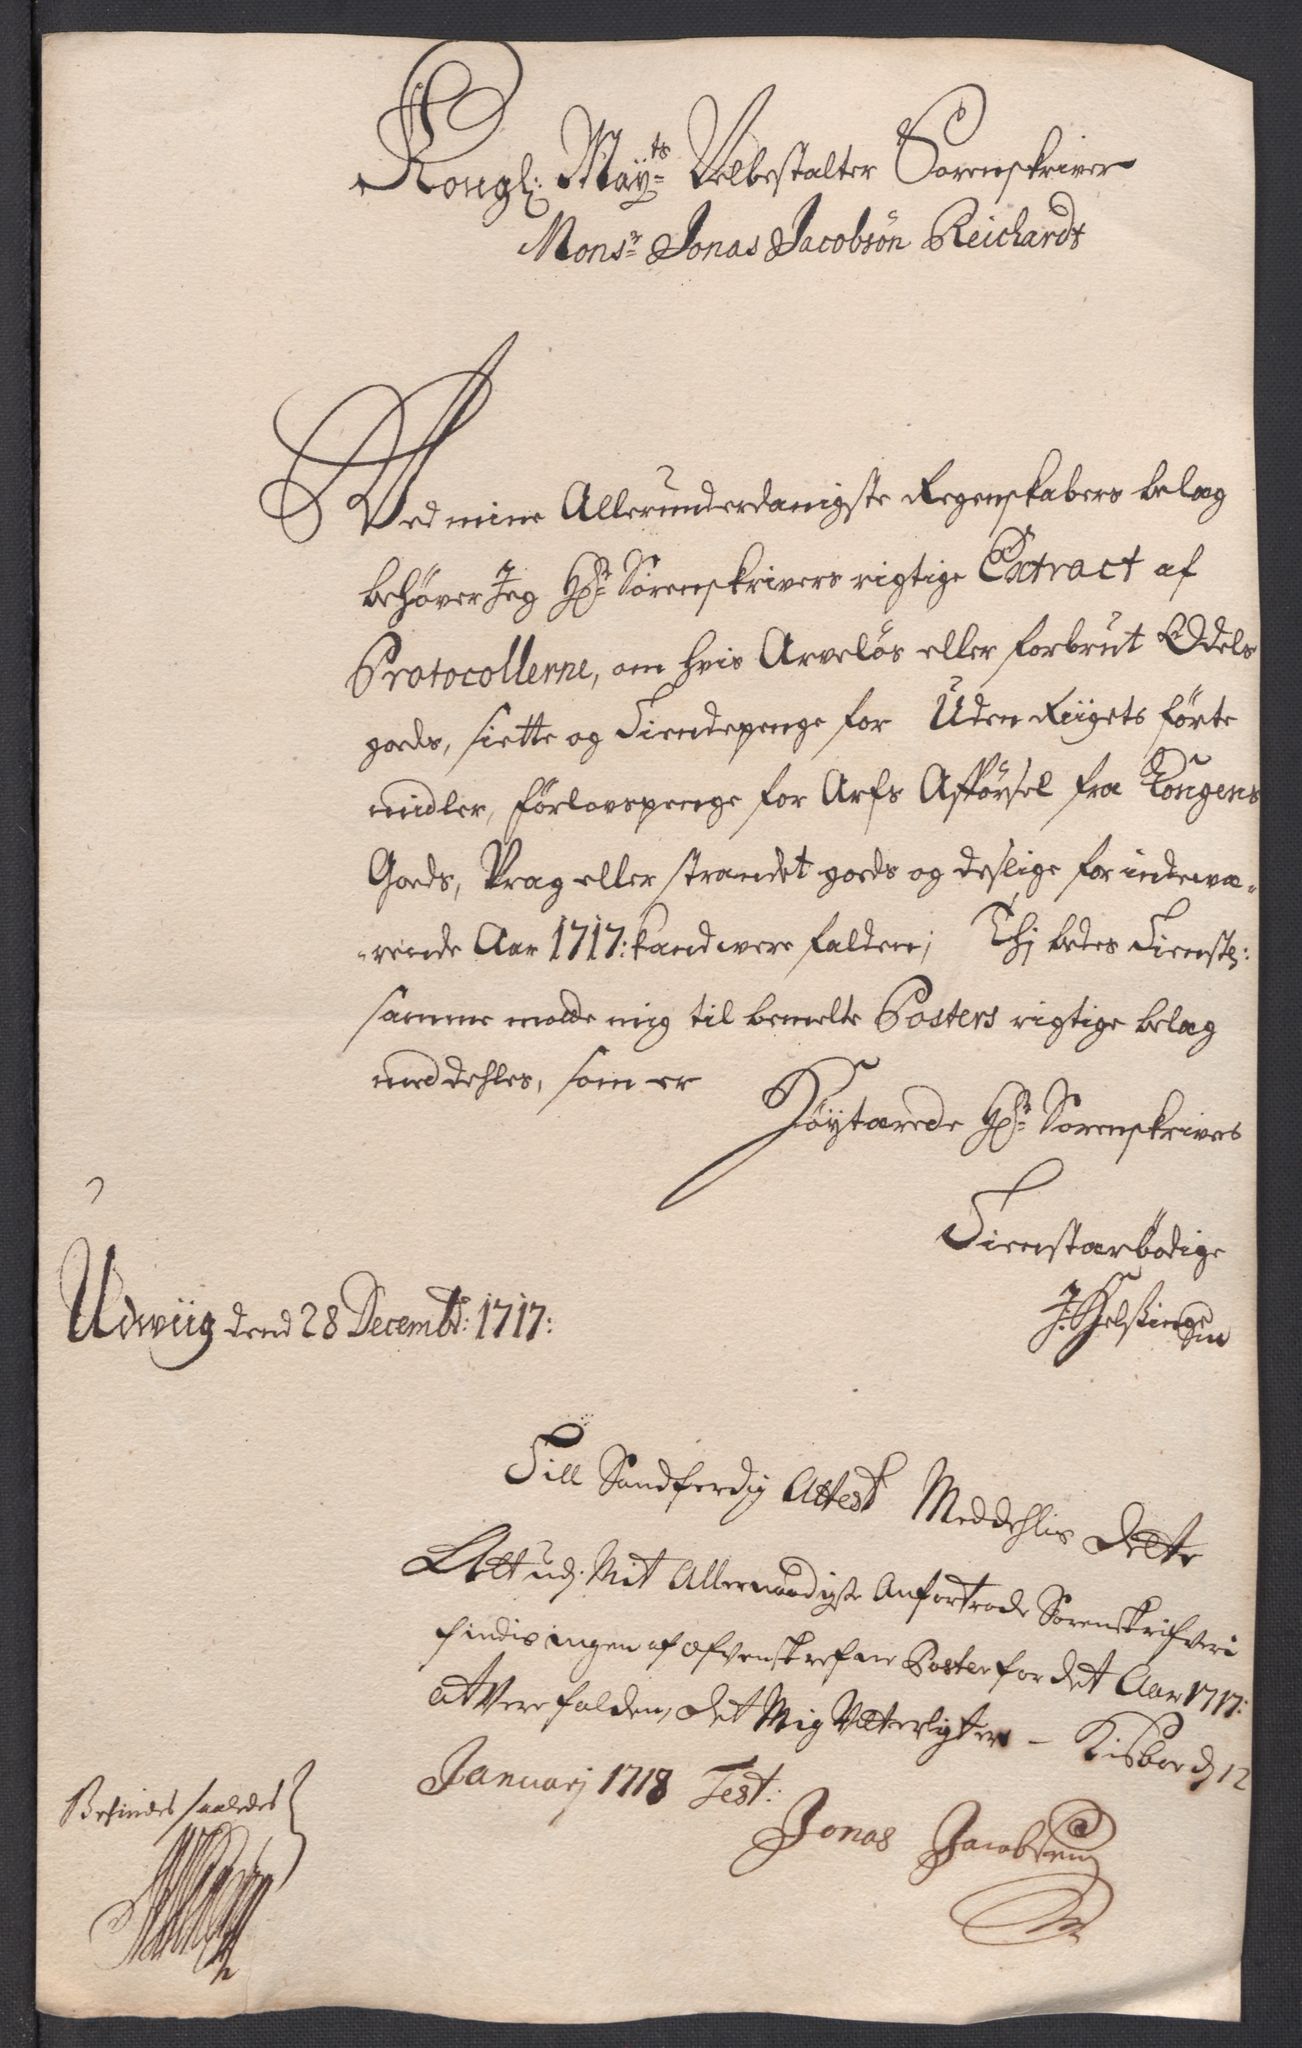 Kongl: May:ts Velbestalter Sorenskriver
Mons:r Jonas Jacobsön Reichardt
Ved mine Allerunderdanigste Regenskabers belæg
behöver Jeg Hr: Sorenskrivers rigtige Extract af
Protocollerne, om hvis Arvelös eller forbrut Odels
goeds, siette og Tiendepenge for Uden Riigets förte
midler, förlovspenge for Arfs Afförsel fra Kongens
Goeds, Vrag eller strandet goeds og deslige for indewæ-
-rende Aar 1717: kand were falden; Thj bedes Tienstl:
samme motte mig til bemelte Posters rigtige belæg
meddehles, som er
Höytærede Hr: Sorenskrivers
Tienstærbödige
Udwiig dend 28 Decembr: 1717:
Till Sandferdig Attest Meddehlis dette
Att udj Mit Allernaadigste Anfortrode Sorenskrifveri
findis ingen af ofvenskrefne Poster for det Aar 1717:
at Vere falden, det Mig Vitterligt er - d 12
Januarj 1718 Test:
Jonas Jacobsen
Befindes saaledes